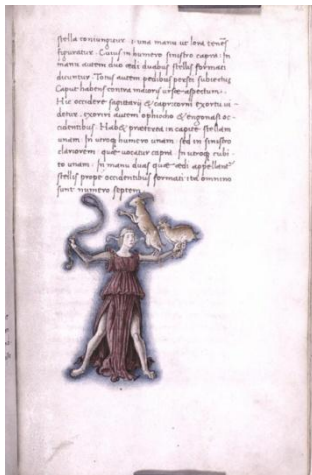 stella coniungitur. I una manu ut lora tenes
figuratur. Cuius in humero sinistro capra. In
manu autem duo ædi duabus stellis formati
dicuntur. Totus autem pedibus persei subiectus
Caput habens contra maioris ursæ aspectum.
Hic occidere sagittarii & capricorni exortu ui-
detur. exoriri autem ophiucho & engonasi oc-
cidentibus. Hab& præterea in capite stellam
unam. In utroq; humero unam. sed in sinistro
clariorem quæ uocatur capra. In utroq; cubi-
to unam. In manu duas quæ ædi appellant
stellis prope occidentibus formati. ita omnino
sunt numero septem